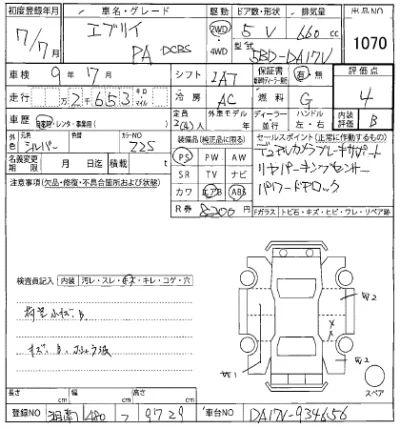 初度登録年月 車名・グレード 駆動 ドア数・形状 排気量 出品NO
17/7月 エブリイ PA DCBS 2WD 4WD 5 V 660 cc 1070
型式 5BD-DA17V
車検 9年 17月 シフト IAT 保証書 有・無 評価点 4
走行 万 2千653 km マイル 冷房 AC 燃料 G
車歴 自家用・レンタ・事業用 定員 2(4)人 外車モデル 年 ディーラー 並行 ハンドル 左・右 内装評価 B
外色 シルバー 色替 カラーNO Z2S
装備品(純正品に限る) セールスポイント(正常に作動するもの)
名義変更期限 月 日迄 積載 t
PS PW AW デュアルカメラブレーキサポート
SR TV ナビ リヤパーキングセンサー
カワ エアB ABS パワードアロック
注意事項(欠品・修復・不具合箇所および状態)
R券 8200円 Fガラス トビ石・キズ・ヒビ・ワレ・リペア跡
検査員記入 内装 汚レ・スレ・キズ・キレ・コゲ・穴
荷室小キズ
W2
W2
W1
スペア
長さ cm 幅 cm 高さ cm
登録NO 湘南 480 9729 車台NO DA17V-934656